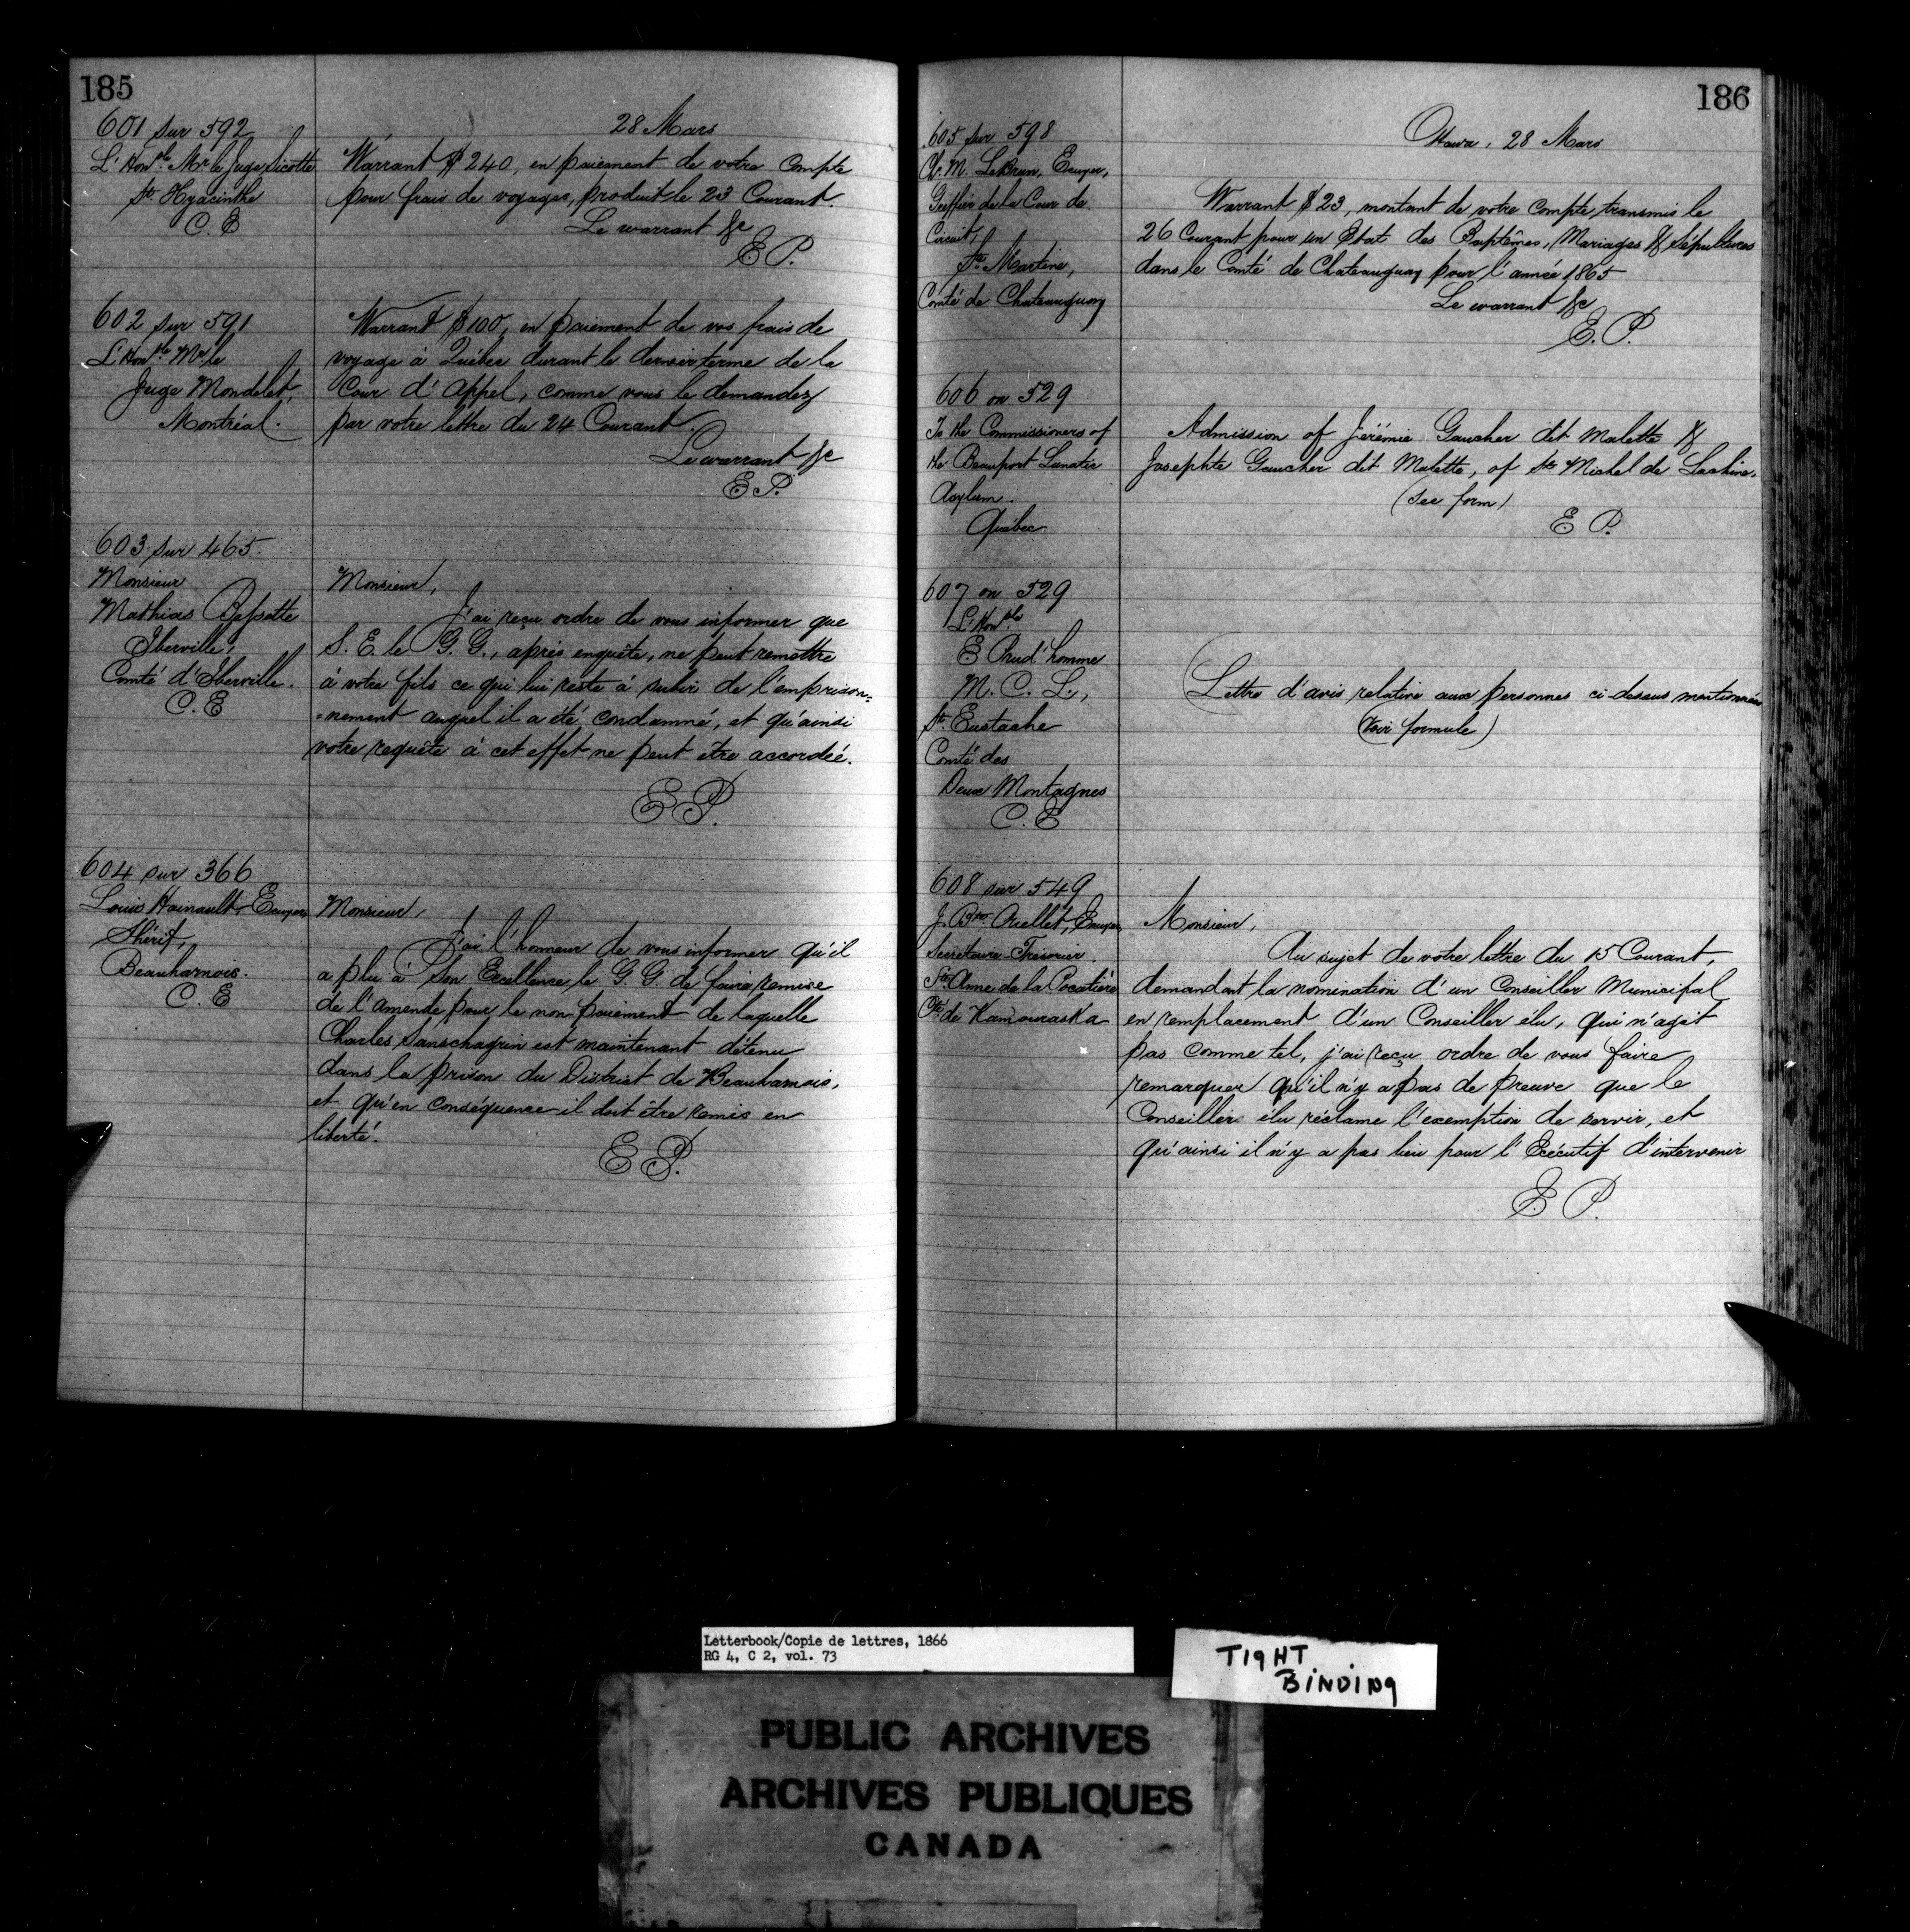 185
28 Mars
601 sur 592
L'Honble Mr le Juge Sicotte
St. Hyacinthe
C. E
Warrant $240, en paiement de votre Compte
pour frais de voyages, produit le 23 Courant.
Le warrant &c
E P.
602 sur 591
L'Honble Mr le
Juge Mondelet,
Montréal.
Warrant $100, en paiement de vos frais de
voyage à Québec durant le dernier terme de la
Cour d'Appel, comme vous le demandez
par votre lettre du 24 Courant.
Le warrant &c
E P.
603 sur 465.
Monsieur
Mathias Bessette
Iberville,
Comté d'Iberville.
C. E
Monsieur,
J'ai reçu ordre de vous informer que
S. E. le G. G., après enquête, ne peut remettre
à votre fils ce qui lui reste à subir de l'emprison=
=nement auquel il a été condamné, et qu'ainsi
votre requête à cet effet ne peut être accordée.
E P.
604 sur 366
Louis Hainault, Ecuyer
Shérif,
Beauharnois.
C. E
Monsieur,
J'ai l'honneur de vous informer qu'il
a plu à Son Excellence le G. G. de faire remise
de l'amende pour le non paiement de laquelle
Charles Sanschagrin est maintenant détenu
dans la prison du District de Beauharnois,
et qu'en conséquence il doit être remis en
liberté.
E P.
186
Ottawa, 28 Mars
605 sur 598
Ch. M. LeBrun, Ecuyer,
Greffier de la Cour de
Circuit,
Ste Martine,
Comté de Chateauguay
Warrant $23, montant de votre compte, transmis le
26 Courant pour un Etat des Baptêmes, Mariages & Sépultures
dans le Comté de Chateauguay pour l'année 1865
Le warrant &c
E. P.
606 on 529
To the Commissioners of
the Beauport Lunatic
Asylum.
Québec
Admission of Jérémie Gaucher dit Malette &
Josephte Gaucher dit Malette, of St. Michel de Lachine.
(see form)
E P.
607 on 529
L'Honble
E Prud'homme
M. C. L.,
St. Eustache
Comté des
Deux Montagnes
C. E
Lettre d'avis relative aux personnes ci-dessus mentionnées
(Voir formule)
608 sur 549
J. Bte Ouellet, Ecuyer,
Secrétaire-Trésorier.
Ste Anne de la Pocatière
Cté de Kamouraska
Monsieur,
Au sujet de votre lettre du 15 Courant,
demandant la nomination d'un Conseiller Municipal
en remplacement d'un Conseiller élu, qui n'agit
pas comme tel, j'ai reçu ordre de vous faire
remarquer qu'il n'y a pas de preuve que le
Conseiller élu réclame l'exemption de servir, et
qu'ainsi il n'y a pas lieu pour l'Exécutif d'intervenir
E P.
Letterbook/Copie de lettres, 1866
RG 4, C 2, vol. 73
TIGHT
BINDING
PUBLIC ARCHIVES
ARCHIVES PUBLIQUES
CANADA